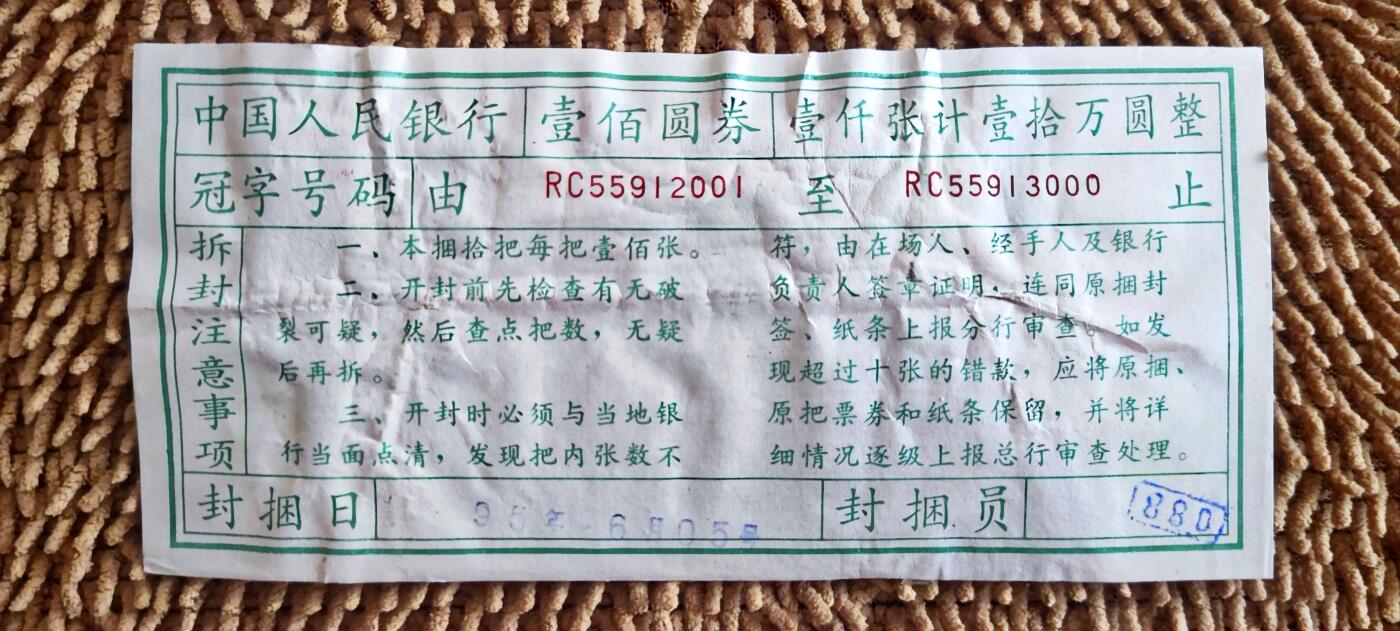 中国人民银行 壹佰圆券 壹仟张计壹拾万圆整
冠字号码 由 RC55912001 至 RC55913000 止
拆封注意事项
一、本捆拾把每把壹佰张。
二、开封前先检查有无破
裂可疑，然后查点把数，无疑
后再拆。
三、开封时必须与当地银
行当面点清，发现把内张数不
符，由在场人、经手人及银行
负责人签章证明，连同原捆封
签、纸条上报分行审查。如发
现超过十张的错款，应将原捆、
原把票券和纸条保留，并将详
细情况逐级上报总行审查处理。
封捆日 95年6月05日 封捆员 088